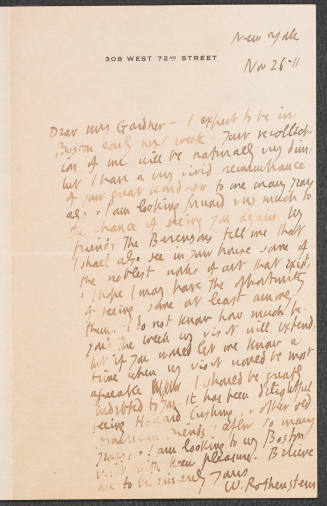 New York
Nov 26-11
308 WEST 72ND STREET
Dear Mrs Gardner - I expect to be in
Boston early next week. Your recollect-
ion of me will be naturally very dim,
but I have a very vivid remembrance
of your great kindness to me many years
ago. I am looking forward very much to
the chance of seeing you again. My
friends the Berensons tell me that
I shall also see in your house some of
the noblest works of art that exist,
& I hope I may have the opportunity
of seeing some at least among
them. I do not know how much be-
yond the week my visit will extend,
but if you would let me know a
time when my visit would be most
agreeable I should be greatly
indebted to you. It has been delightful
seeing Howard Cushing & other old
American friends after so many
years, & I am looking to my Boston
visit with keen pleasure. Believe
me to be sincerely yours
W. Rothenstein